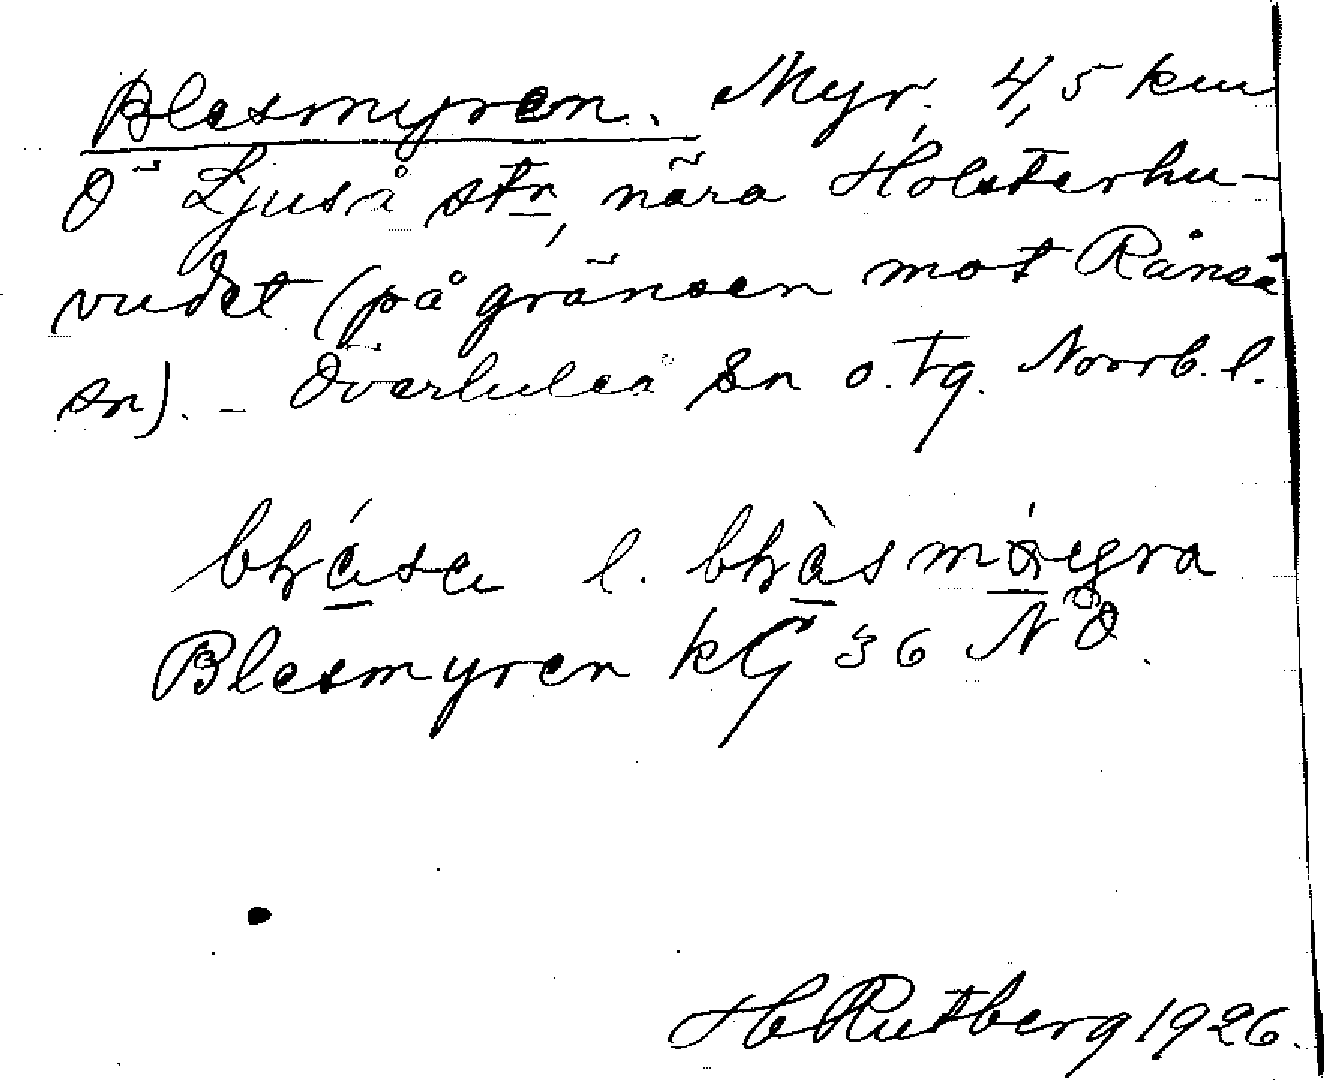 Blesmyren. Myr. 4,5 km
Ö Ljuså stn, nära Holsterhu-
vudet (på gränsen mot Råneå
sn). - Överluleå sn o. tg. Norrb. l.
l.
Blesmyren kG 36 NÖ.
H Rutberg 1926.